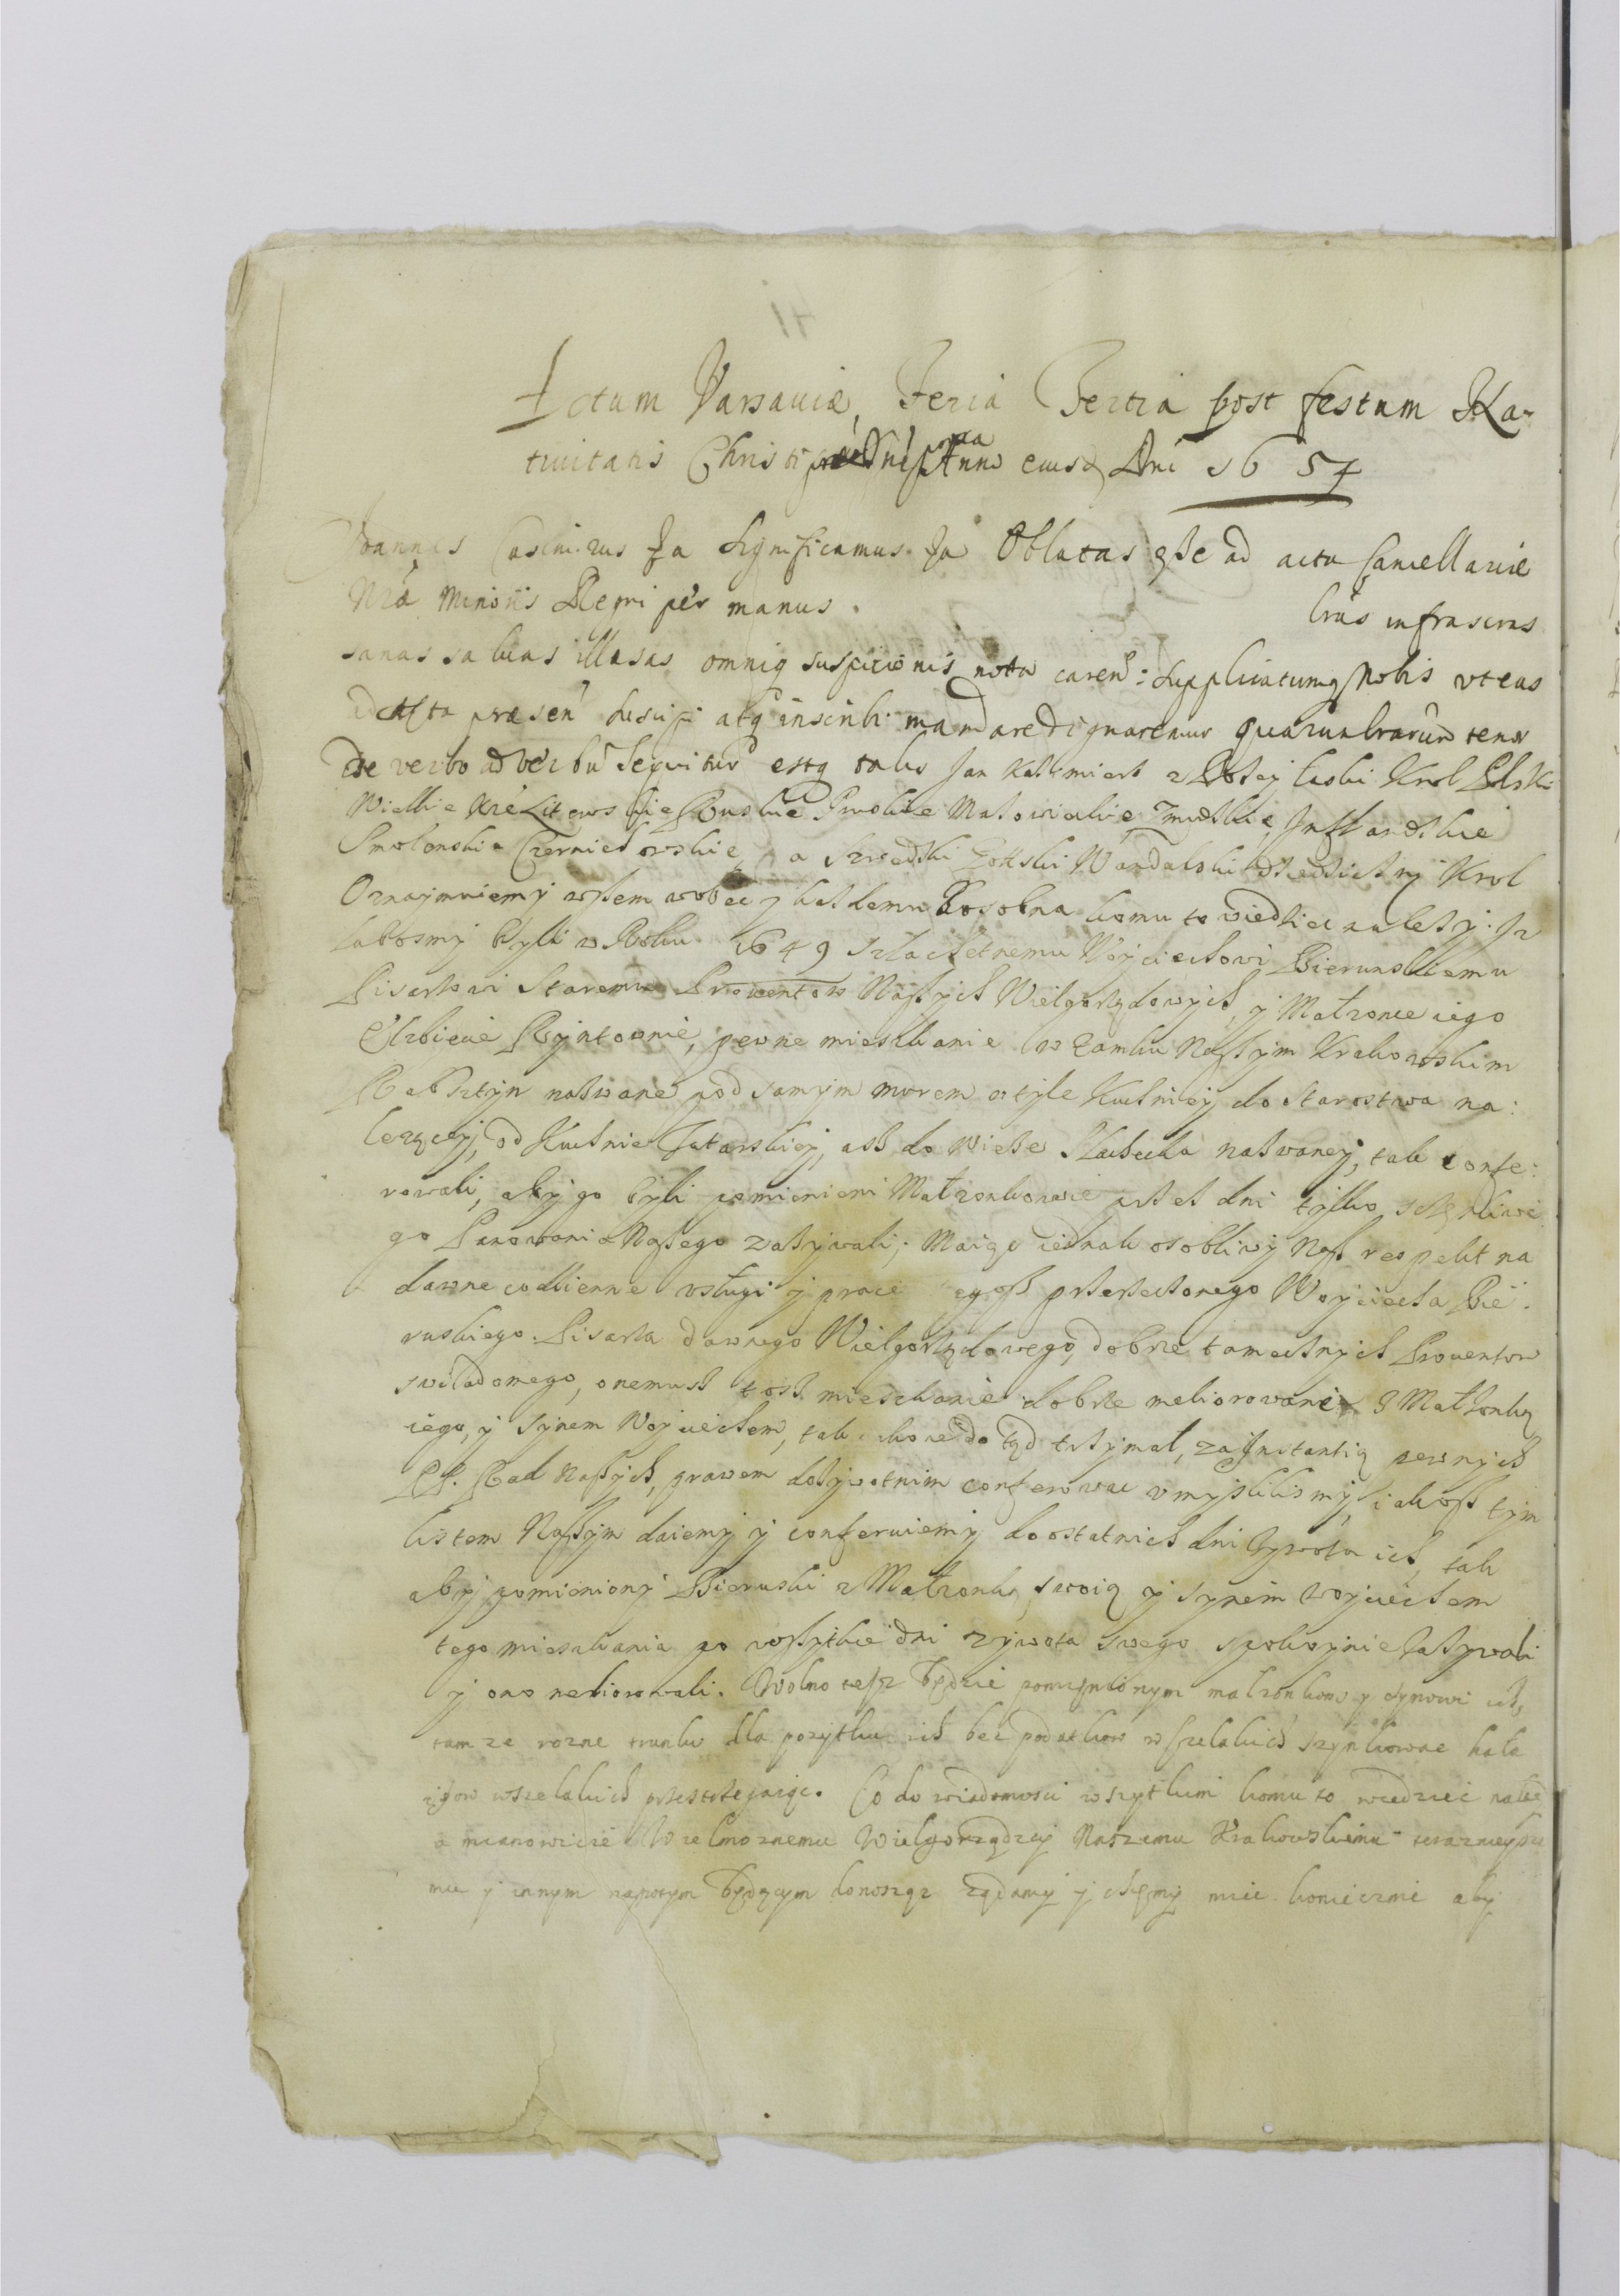 Actum Varsaviæ, Feria Tertia post festum Na-
tiuitatis Christi Anno eiusd Dni 1657
Joannes Casimirus Ja Significamus Ja Oblatas esse ad acta Cancellariæ
Nræ Minoris Regni per manus . lras infrascras
sanas saluas illæsas omniq suspicionis nota caren: Supplicatumq Nobis vt eas
ad Acta præsen suscipi atq inscribi mandare dignaremur quarum lrarum tenor
de verbo ad verbu Sequitur estq talis Jan Kazimierz z Bożey łaski Krol Polski
Wielkie Xże Litewskie Ruskie Pruskie Mazowieckie Zmudzkie, Inflandzkie
Smolenskie Czerniehowskie, a Szwedzki Gottski Wandalski dziedziczny Krol
Oznaymuiemy wszem wobec y każdemu zosobna komu to wiedziec należy. Iz
iakosmy byli w Roku 1649 Szlachetnemu Woyciechowi Bierunskiemu
Pisarzowi Staremu Prowentow Naszych Wielgorządowych, y Małzonce iego
Elzbiecie Ryntownie, pewne mieszkanie w Zamku Naszym Krakowskim
Rabsztyn nazwane pod samym murem wtyle Kuchniey do starostwa na:
lezącey, od Kuchnie Tatarskiey, asz do Wieże Szlachecka nazwaney, tak confe:
rowali, aby go byli pomienieni Małzonkowie przez dni tylko szczęsliwe
go Panowania Naszego zażywali; Maiąc iednak osobliwy Nasz respekt na
dawne codzienne vsługi y prace tegosz przerzeczonego Woyciecha Bie:
ruskiego Pisarza dawnego Wielgorządowego, dobrze tamecznych Prouentow
swiadomego, onemusz tosz mieszkanie dobrze meliorowane z Małzonką
iego, y synem Woyciechem, tak iako ie do tąd trzymał, za Instantią pewnych
PP. Rad Naszych, prawem dożywotnim conferowac vmyslilismy, iakosz tym
listem Naszym daiemy y conferuiemy do ostatnich dni żywota ich, tak
aby pomieniony Bieruski z Małzonką swoią y synem Woyciechem
tego mieszkania po wszytkie dni zywota swego spokoynie zażywali
y ono meliorowali. Wolno tesz będzie pomienionym małzonkom y synowi ich,
tam ze rozne trunki dla pozytku ich bez podatkow wszelakich szynkowac hała
sow wszelakich przestrzegaiąc. Co do wiadomosci wszytkim komu to wiedziec nalezy
a mianowicie Wielmoznemu Wielgorządzcy Naszemu Krakowskiemu terazniejsze
mu y innym napotym będącym donosząc ządamy y chcemy miec koniecznie aby